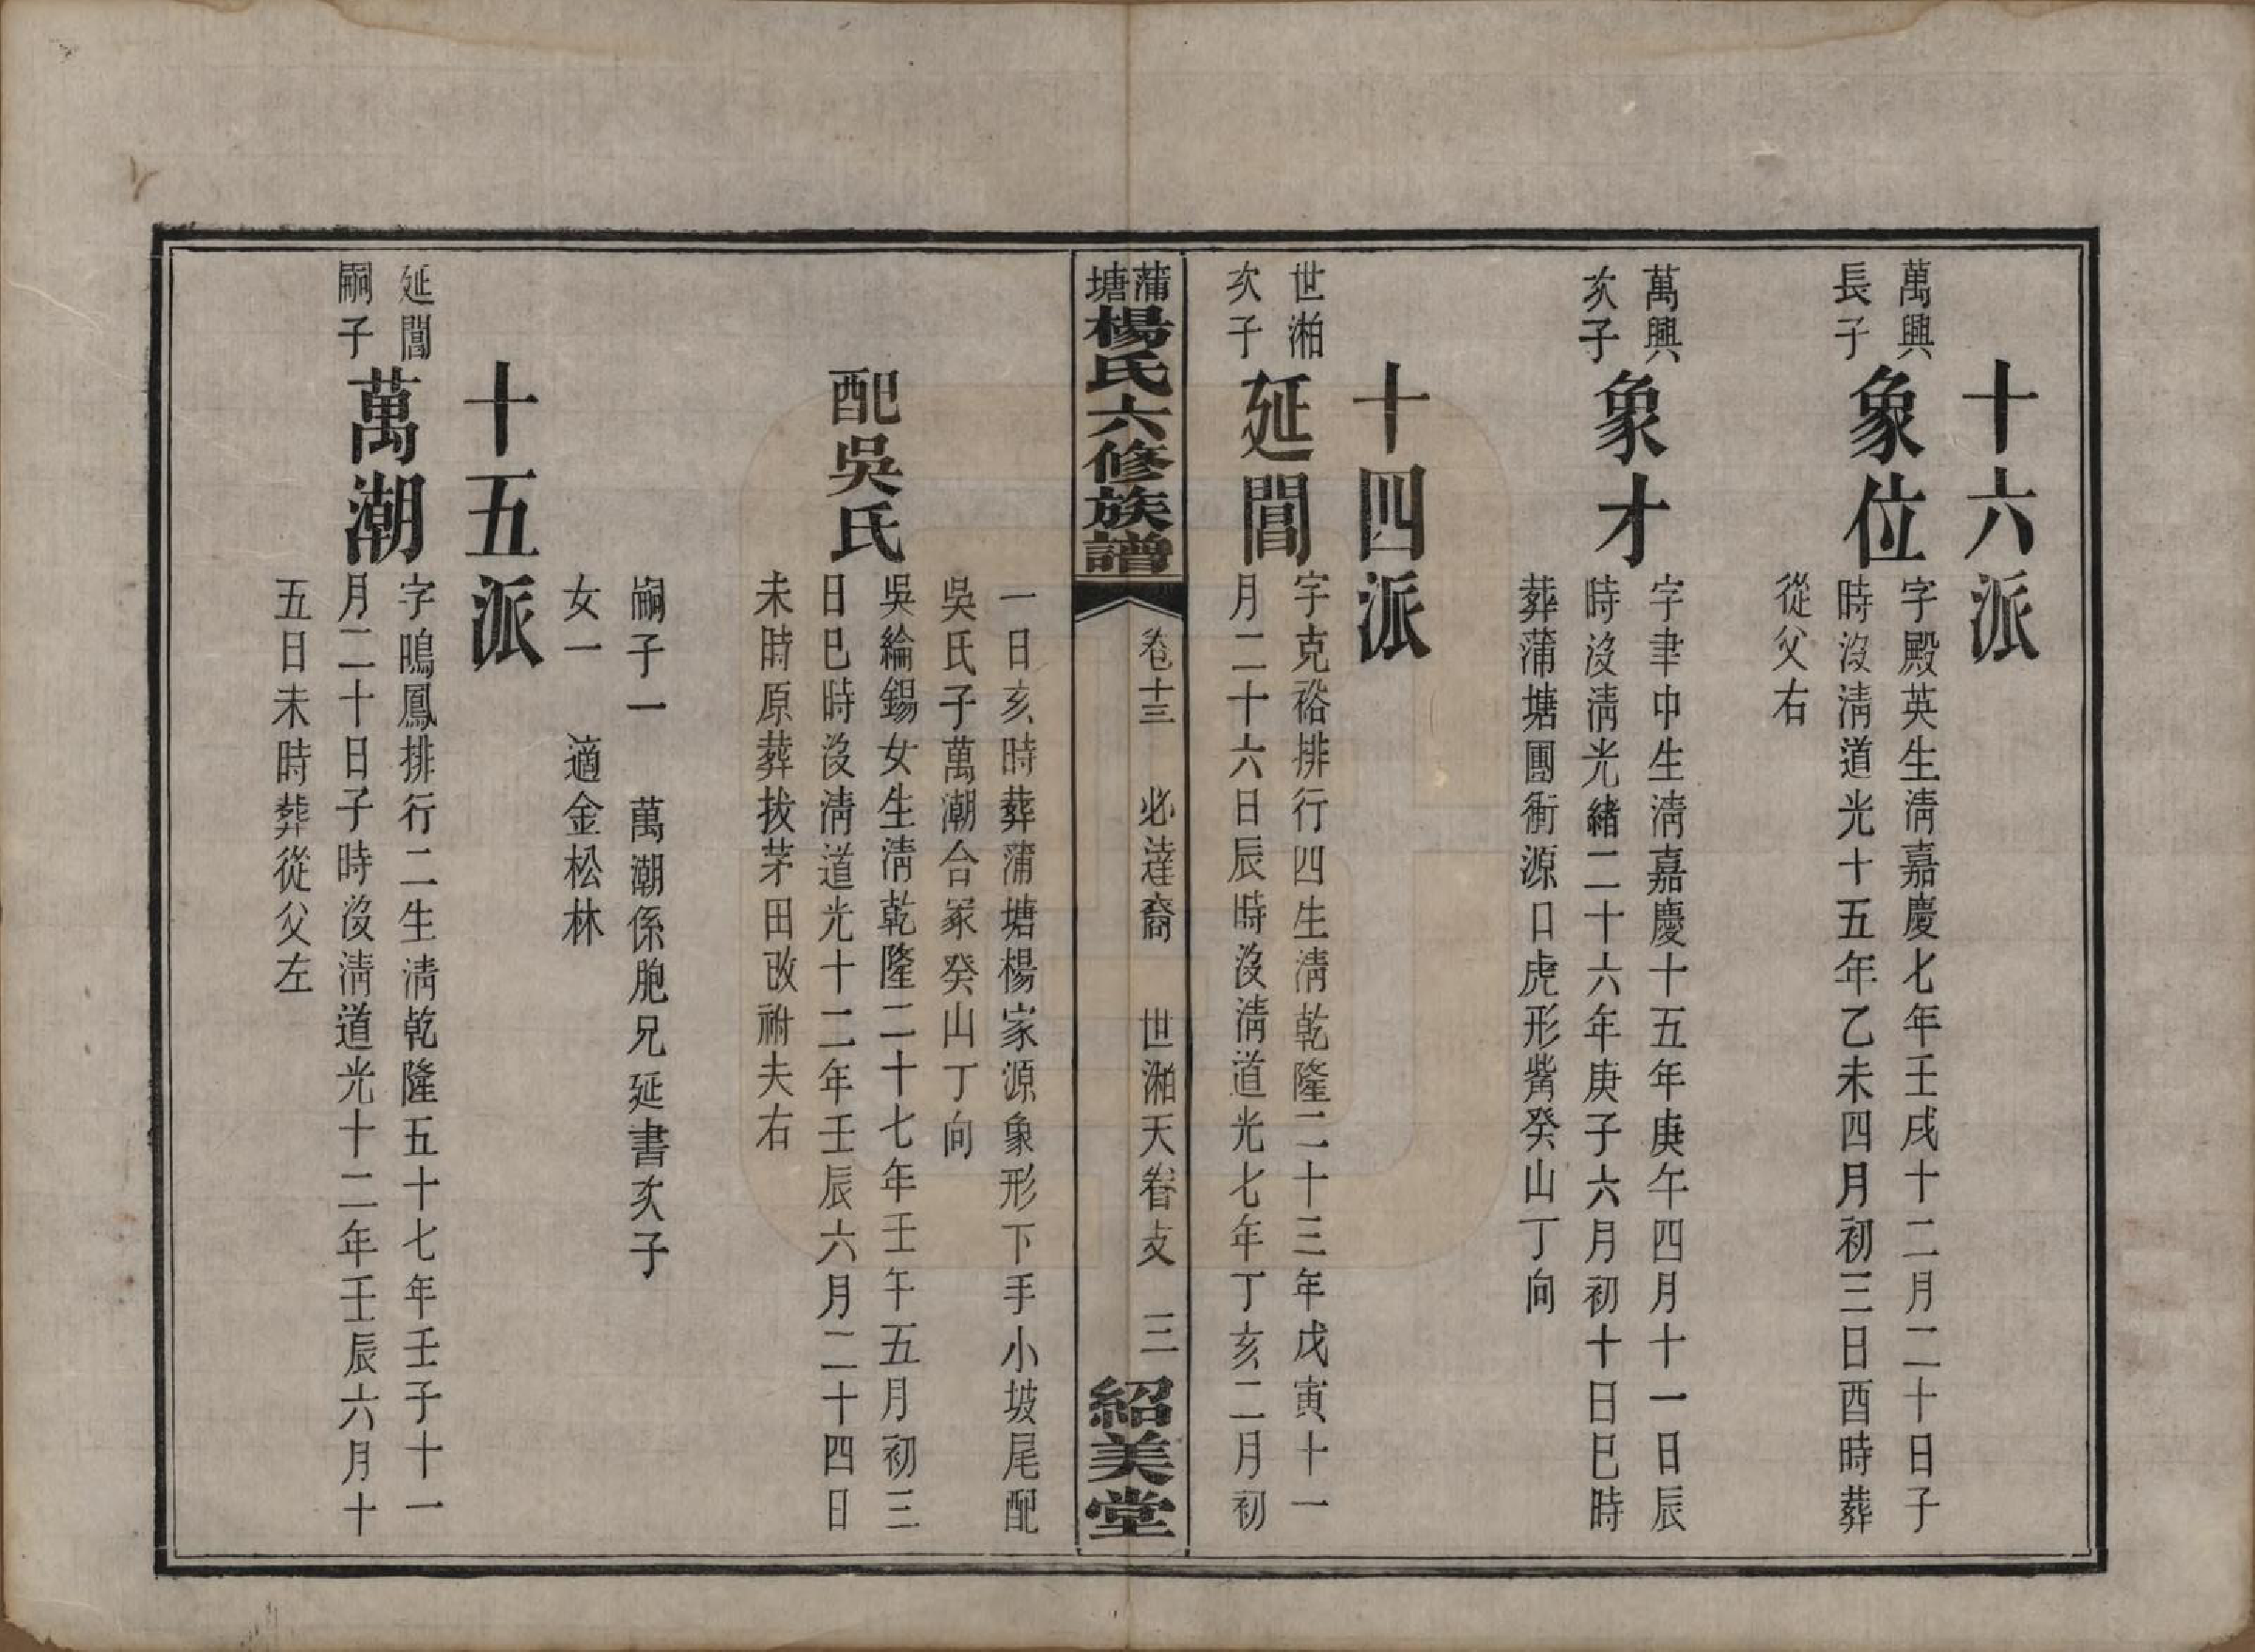 十六派
萬興
長子
象位
字殿英生淸嘉慶七年壬戌十二月二十日子
時沒淸道光十五年乙未四月初三日酉時葬
從父右
萬興
次子
象才
字聿中生淸嘉慶十五年庚午四月十一日辰
時沒淸光緒二十六年庚子六月初十日巳時
葬蒲塘團衝源口虎形觜癸山丁向
十四派
世湘
次子
延閶
字克裕排行四生淸乾隆二十三年戊寅十一
月二十六日辰時沒淸道光七年丁亥二月初
蒲塘
楊氏六修族譜
卷十三 必達裔 世湘天眷支 三
紹美堂
一日亥時葬蒲塘楊家源象形下手小坡尾配
吳氏子萬潮合冢癸山丁向
配吳氏
吳綸錫女生淸乾隆二十七年壬午五月初三
日巳時沒淸道光十二年壬辰六月二十四日
未時原葬拔茅田改祔夫右
嗣子一 萬潮係胞兄延書次子
女一 適金松林
十五派
延閶
嗣子
萬潮
字鳴鳳排行二生淸乾隆五十七年壬子十一
月二十日子時沒淸道光十二年壬辰六月十
五日未時葬從父左